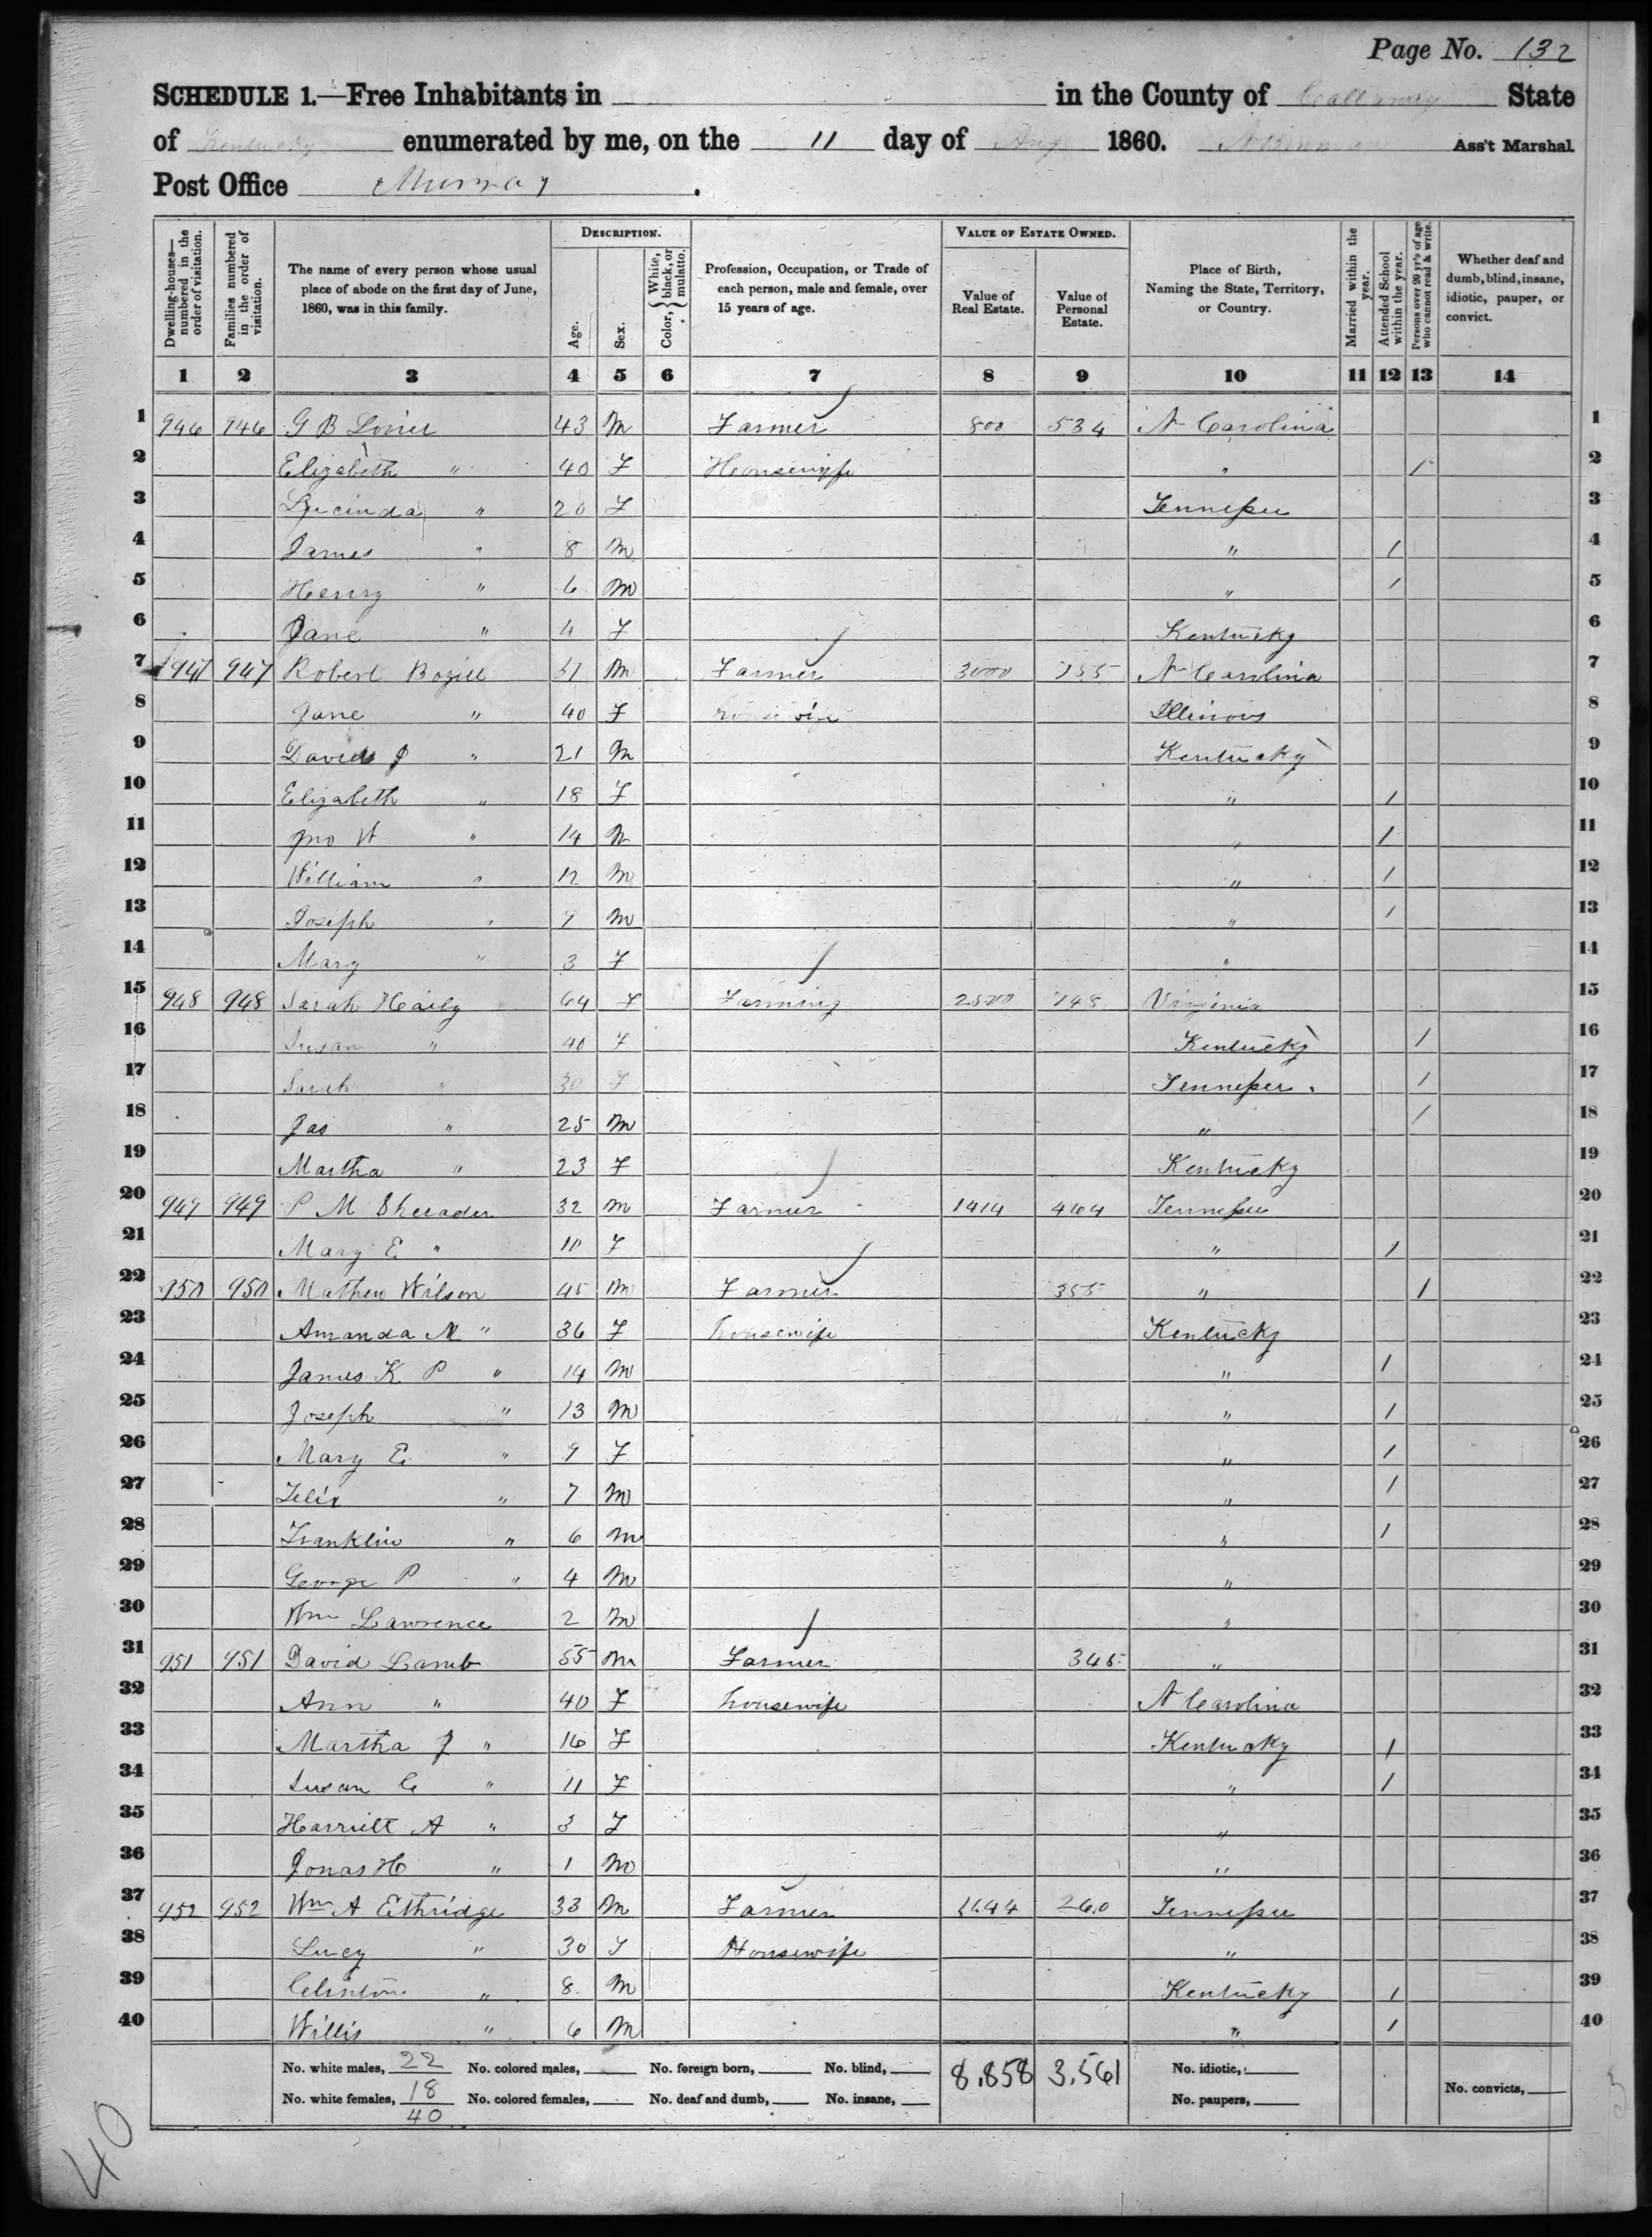 Page No. 132
SCHEDULE 1.—Free Inhabitants in in the County of Calloway State
of Kentucky enumerated by me, on the 11 day of Aug 1860. Ass't Marshal
Post Office Murray .
Dwelling-houses—numbered in the order of visitation.
Families numbered in the order of visitation.
The name of every person whose usual place of abode on the first day of June, 1860, was in this family.
DESCRIPTION.
Age.
Sex.
Color, { White, black, or mulatto.
Profession, Occupation, or Trade of each person, male and female, over 15 years of age.
VALUE OF ESTATE OWNED.
Value of Real Estate.
Value of Personal Estate.
Place of Birth, Naming the State, Territory, or Country.
Married within the year.
Attended School within the year.
Persons over 20 yr's of age who cannot read & write.
Whether deaf and dumb, blind, insane, idiotic, pauper, or convict.
1 2 3 4 5 6 7 8 9 10 11 12 13 14
1 946 946 G B 43 M Farmer 800 534 N Carolina 1
2 Elizabeth " 40 F Housewife " / 2
3 Lucinda " 20 F Tennessee 3
4 James " 8 M " / 4
5 Henry " 6 M " / 5
6 Jane " 4 F Kentucky 6
7 947 947 Robert M Farmer 3000 N Carolina 7
8 Jane " 40 F Illinois 8
9 David J " 21 M Kentucky 9
10 Elizabeth " 18 F " / 10
11 Jno " 14 M " / 11
12 William " 12 M " / 12
13 Joseph " 9 M " / 13
14 Mary " 3 F " 14
15 948 948 Sarah Haily 64 F Farming 2500 748 Virginia 15
16 Susan " 40 F Kentucky / 16
17 Sarah " 30 F Tennessee / 17
18 Jas " 25 M " / 18
19 Martha " 23 F Kentucky 19
20 949 949 P M 32 M Farmer 1414 464 Tennessee 20
21 Mary E " 10 F " / 21
22 950 950 Mathew Wilson 45 M Farmer 355 " / 22
23 Amanda M " 36 F housewife Kentucky 23
24 James K P " 14 M " / 24
25 Joseph " 13 M " / 25
26 Mary E " 9 F " / 26
27 Felix " 7 M " / 27
28 Franklin " 6 M " / 28
29 George P " 4 M " 29
30 Wm Lawrence 2 M " 30
31 951 951 David Lamb 55 M Farmer 345 " 31
32 Ann " 40 F housewife N Carolina 32
33 Martha J " 16 F Kentucky / 33
34 Susan C " 11 F " / 34
35 Harriett A " 3 F " 35
36 Jonas H " 1 M " 36
37 952 952 Wm A Ethridge 33 M Farmer 260 Tennessee 37
38 Lucy " 30 F Housewife " 38
39 Clinton " 8 M Kentucky / 39
40 Willis " 6 M " / 40
No. white males, 22 No. colored males, No. foreign born, No. blind, 8,858 3,561 No. idiotic,
No. white females, 18 No. colored females, No. deaf and dumb, No. insane, No. paupers, No. convicts,
40
40